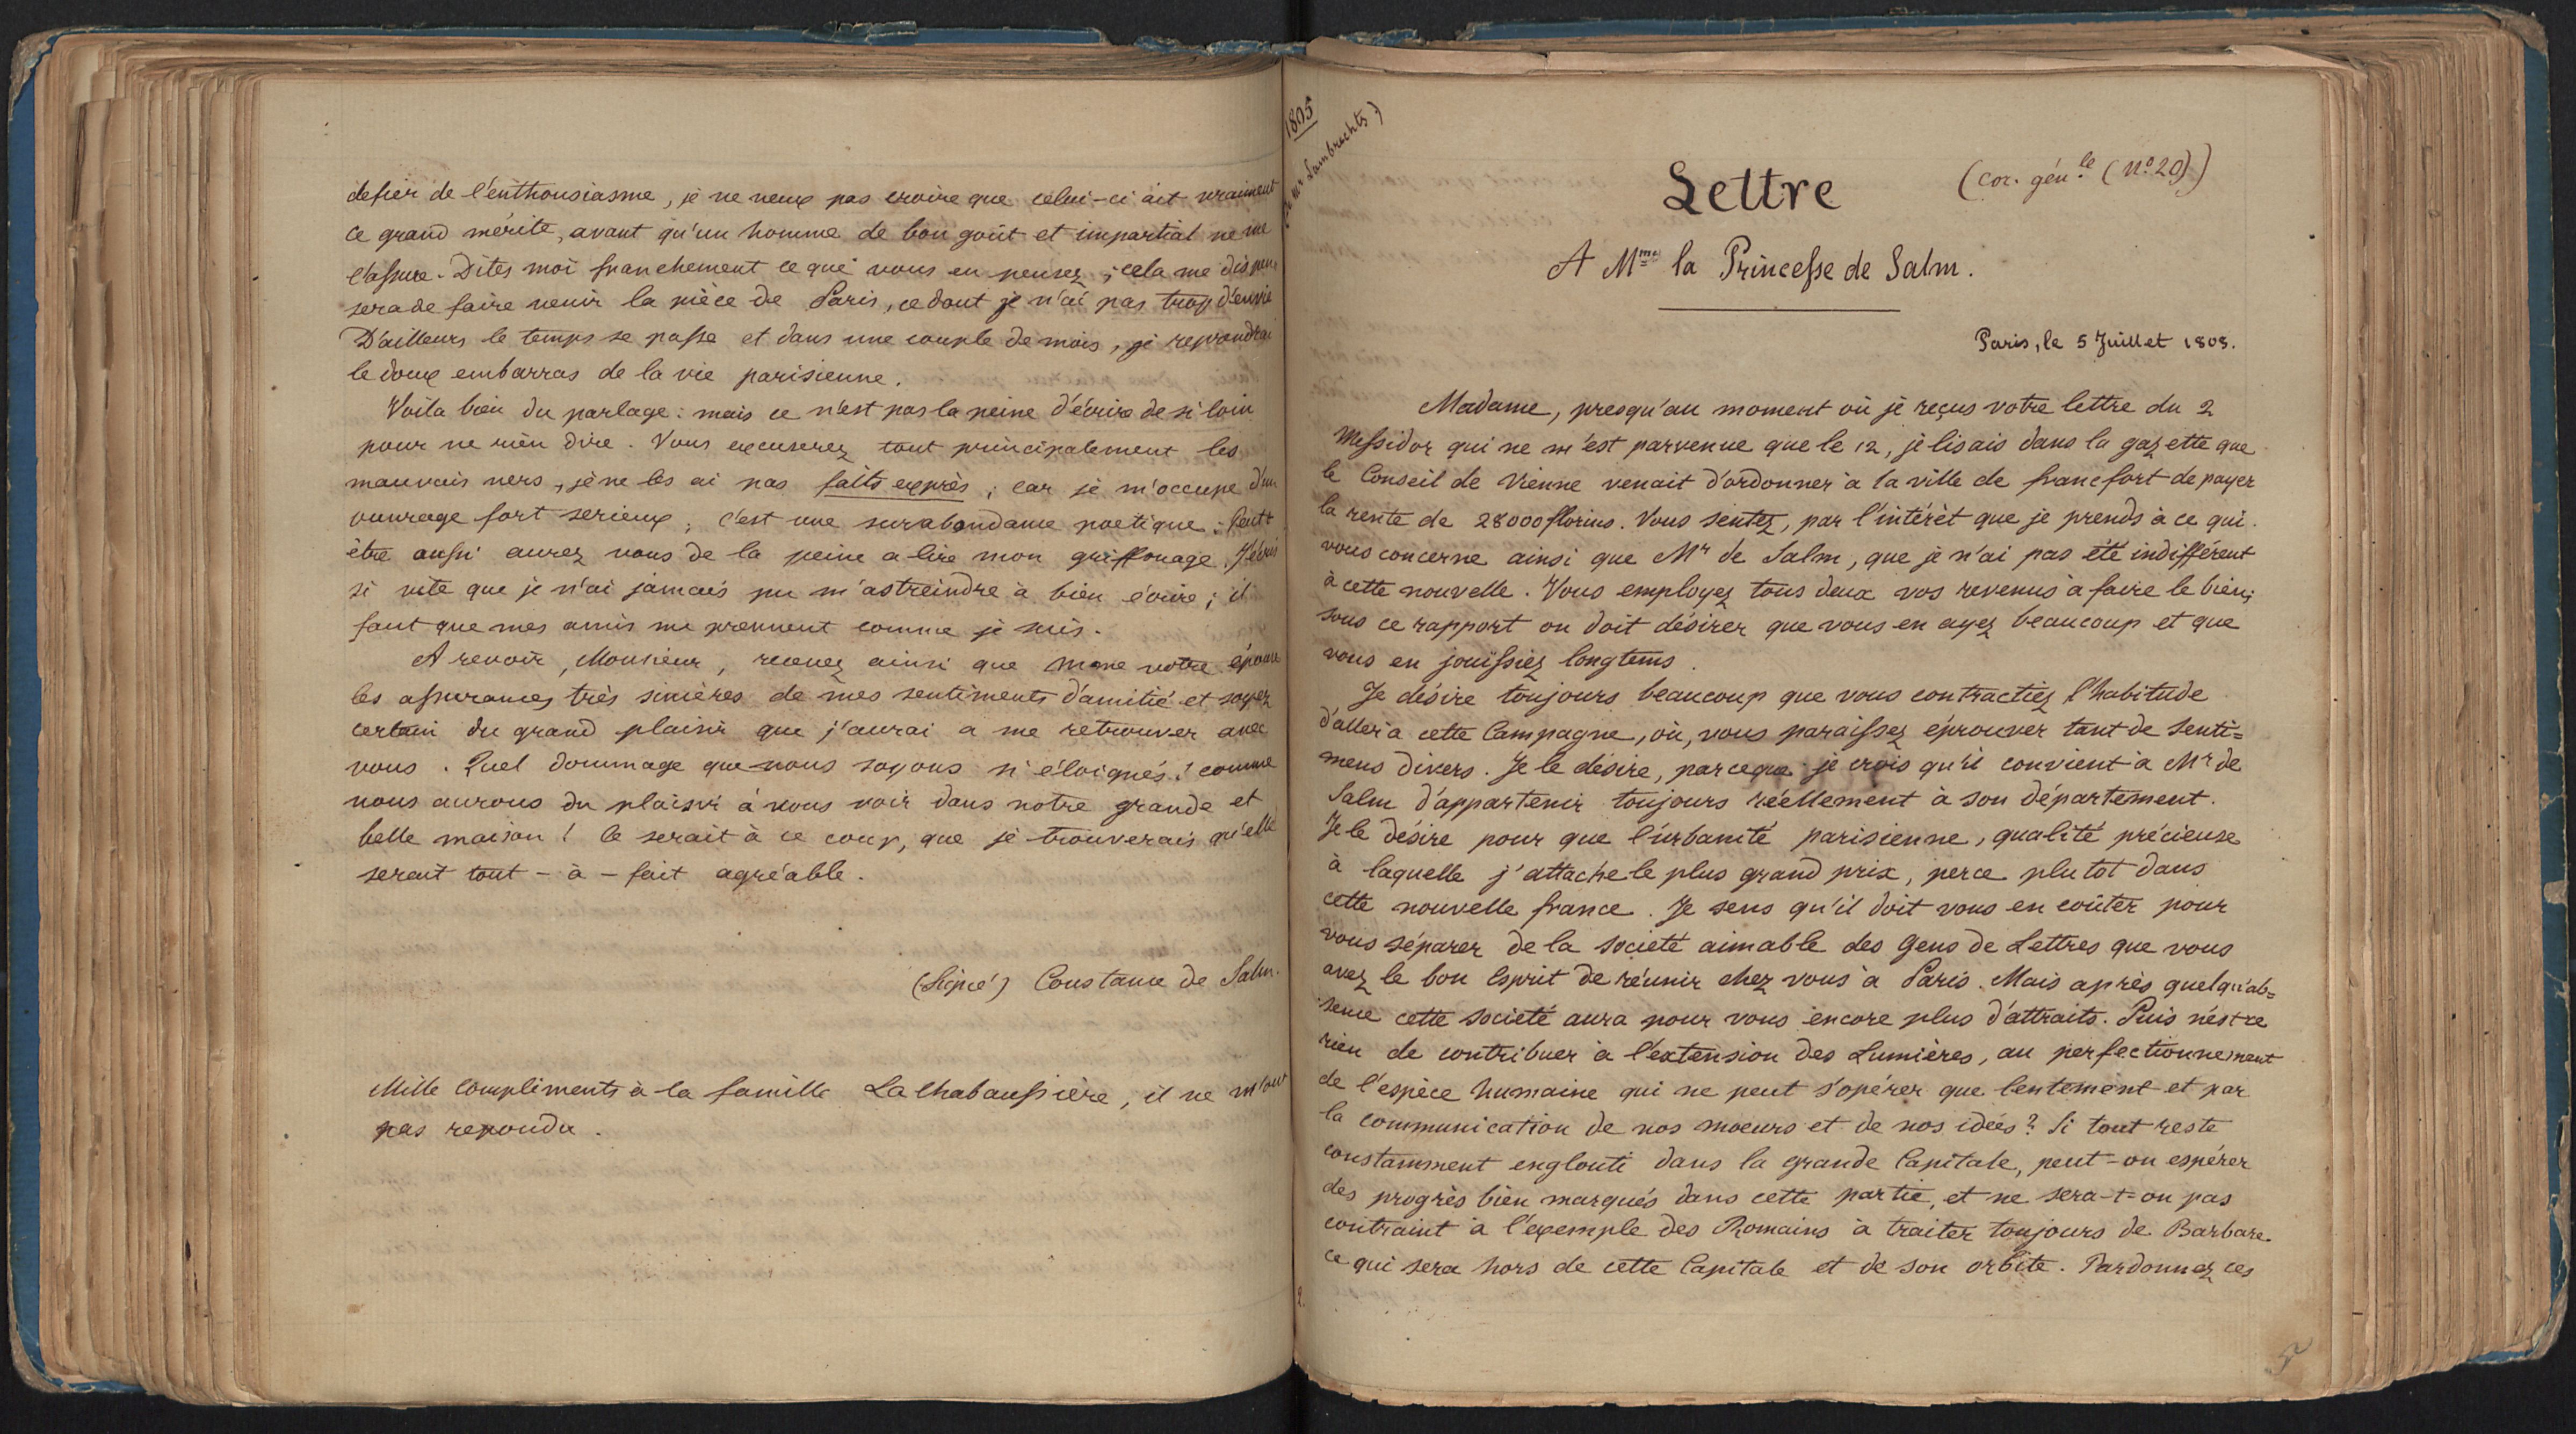 defier de l'enthousiasme, je ne veux pas croire que celui-ci ait vraiment
ce grand mérite, avant qu'un homme de bon goût et impartial ne me
l'assure. Dites moi franchement ce que vous en pensez ; cela me dispen
sera de faire venir la pièce de Paris, ce dont je n'ai pas trop d'envie
D'ailleurs le temps se passe et dans une couple de mois, je reprendrai
le doux embarras de la vie parisienne.
Voila bien du parlage : mais ce n'est pas la peine d'écrire de si loin
pour ne rien dire. Vous excuserez tout principalement les
mauvais vers, je ne les ai pas faits exprès ; car je m'occupe d'un
ouvrage fort serieux ; c'est une surabondance poetique. Peut
être aussi aurez vous de la peine a lire mon griffonage. J'écris
si vite que je n'ai jamais pu m'astreindre à bien écrire ; il
faut que mes amis me prennent comme je suis.
A revoir, Monsieur, recevez ainsi que Mme votre épouse
les assurances très sincères de mes sentiments d'amitié et soyez
certain du grand plaisir que j'aurai a me retrouver avec
vous. Quel dommage que nous soyons si éloignés ! comme
nous aurons du plaisir à vous voir dans notre grande et
belle maison ! Ce serait à ce coup, que je trouverais qu'elle
serait tout-à-fait agréable.
(Signé) Constance de Salm.
Mille compliments à la famille La Chabaussière, il ne m'ont
pas repondu.
1805
(De Mr Lambrechts)
Lettre
(Cor. génle (No 20))
A Mme la Princesse de Salm.
Paris, le 5 Juillet 1805.
Madame, presqu'au moment où je reçus votre lettre du 2
Messidor qui ne m'est parvenue que le 12, je lisais dans la gazette que
le Conseil de Vienne venait d'ordonner à la ville de francfort de payer
la rente de 28000 florins. Vous sentez, par l'intérêt que je prends à ce qui
vous concerne ainsi que Mr de Salm, que je n'ai pas été indifférent
à cette nouvelle. Vous employez tous deux vos revenus à faire le bien;
sous ce rapport on doit désirer que vous en ayez beaucoup et que
vous en jouïssiez longtems.
Je désire toujours beaucoup que vous contractiez l'habitude
d'aller à cette Campagne, où, vous paraissez éprouver tant de senti=
mens divers. Je le désire, parceque je crois qu'il convient à Mr de
Salm d'appartenir toujours réellement à son département.
Je le désire pour que l'urbanité parisienne, qualité précieuse
à laquelle j'attache le plus grand prix, perce plutôt dans
cette nouvelle france. Je sens qu'il doit vous en coûter pour
vous séparer de la societé aimable des Gens de Lettres que vous
avez le bon Esprit de réunir chez vous à Paris. Mais après quelqu'ab=
sence cette societé aura pour vous encore plus d'attraits. Puis n'est ce
rien de contribuer à l'extension des Lumières, au perfectionnement
de l'espèce humaine qui ne peut s'opérer que lentement et par
la communication de nos moeurs et de nos idées ? Si tout reste
constamment englouti dans la grande Capitale, peut-on espérer
des progrès bien marqués dans cette partie, et ne sera-t-on pas
contraint à l'exemple des Romains à traiter toujours de Barbare
ce qui sera hors de cette Capitale et de son orbite. Pardonnez ces
2.